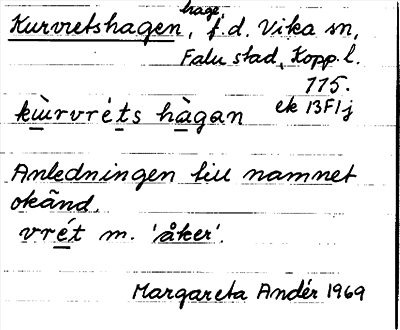 Kurvretshagen, hage, f.d. Vika sn,
Falu stad, Kopp. l.
115.
ek 13F1j
kùrvréts hàgan
Anledningen till namnet
okänd.
vrét m. 'åker'.
Margareta Andér 1969